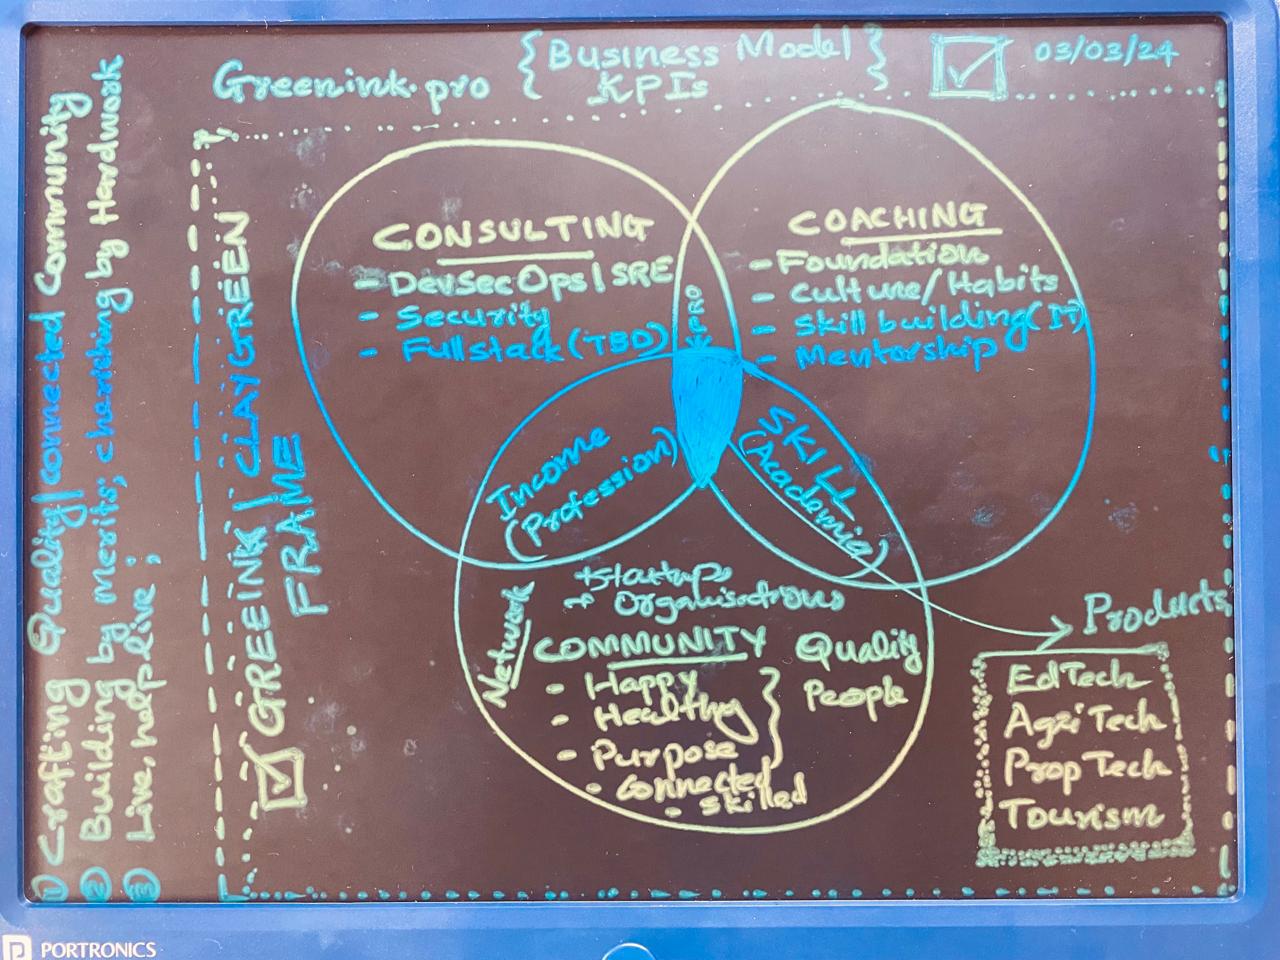 Greenink.pro
{Business Model
KPIs}
03/03/24
① Crafting Quality/connected Community
② Building by merits; cherishing by Hardwork
③ Live, help live;
GREEINK | CLAYGREEN
FRAME
CONSULTING
- DevSecOps | SRE
- Security
- Fullstack (TBD)
COACHING
- Foundation
- Culture/Habits
- Skill building (IT)
- Mentorship
PRO
Income
(Profession)
SKILL
(Academia)
+ Startups
→ Organisations
Network
COMMUNITY
- Happy
- Healthy
- Purpose
- Connected
- Skilled
Quality
People
Products
EdTech
AgriTech
PropTech
Tourism
PORTRONICS